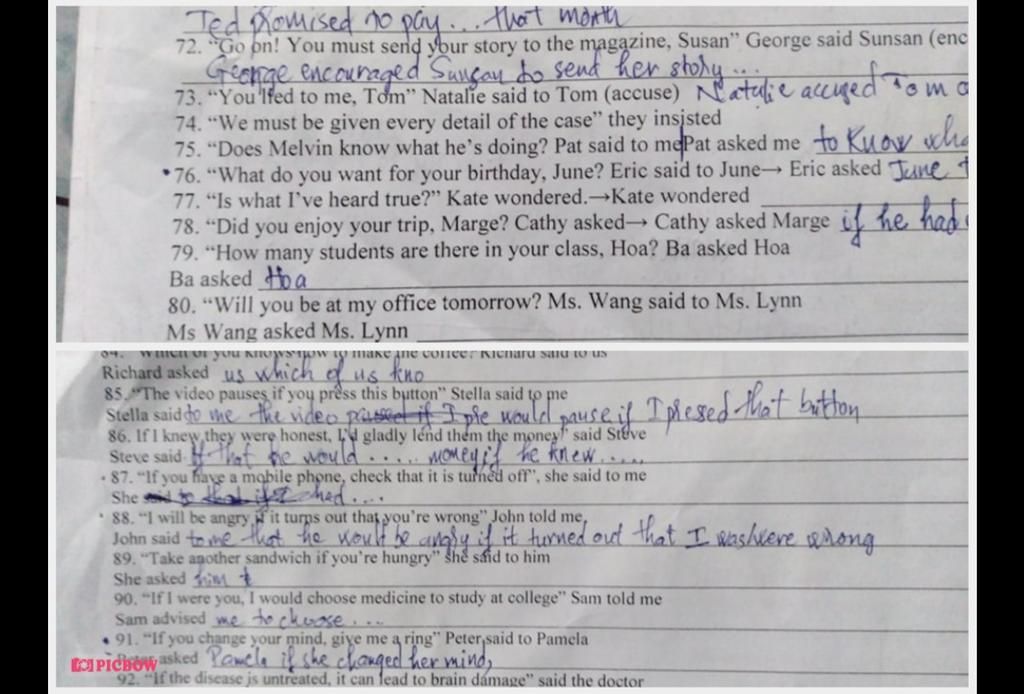 Ted promised to pay... that month
72. "Go on! You must send your story to the magazine, Susan" George said Sunsan (enc
George encouraged Sunsan to send her story...
73. "You lied to me, Tom" Natalie said to Tom (accuse) Natalie accused Tom o
74. "We must be given every detail of the case" they insisted
75. "Does Melvin know what he's doing? Pat said to me Pat asked me to know wha
76. "What do you want for your birthday, June? Eric said to June→ Eric asked June
77. "Is what I've heard true?" Kate wondered.→Kate wondered
78. "Did you enjoy your trip, Marge? Cathy asked→ Cathy asked Marge if he had
79. "How many students are there in your class, Hoa? Ba asked Hoa
Ba asked Hoa
80. "Will you be at my office tomorrow? Ms. Wang said to Ms. Lynn
Ms Wang asked Ms. Lynn
84. "Which of you knows how to make the coffee? Richard said to us
Richard asked us which of us kno
85. "The video pauses if you press this button" Stella said to me
Stella said to me the video would pause if I pressed that button
86. If I knew they were honest, I'd gladly lend them the money" said Steve
Steve said that he would ..... money if he knew.....
87. "If you have a mobile phone, check that it is turned off", she said to me
She had....
88. "I will be angry if it turns out that you're wrong" John told me,
John said to me that he would be angry if it turned out that I was/were wrong
89. "Take another sandwich if you're hungry" she said to him
She asked him t
90. "If I were you, I would choose medicine to study at college" Sam told me
Sam advised me to choose...
91. "If you change your mind, give me a ring" Peter said to Pamela
Peter asked Pamela if she changed her mind,
PICBOW
92. "If the disease is untreated, it can lead to brain damage" said the doctor